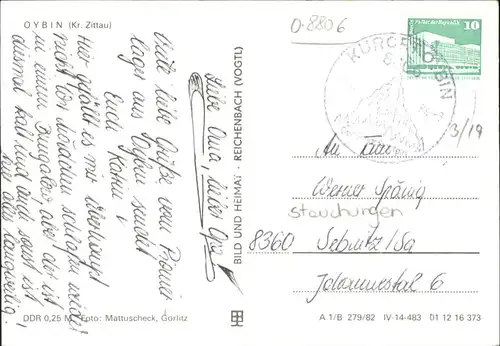 OYBIN (Kr. Zittau)
0-8806
10
Palast der Republik
KURORT OYBIN
Liebe Oma, lieber Opa
Viele liebe Grüße vom Pionier
lager aus Oybin sendet
Euch Katrin!
Hier gefällt es mir überhaupt
nicht. Wir
schlafen wieder
in einem Bungalow, aber der ist
kalt und sonst ist
hier alles langweilig!
BILD UND HEIMAT · REICHENBACH (VOGTL)
3/19
An Fam.
Werner
Stauchungen
8360 Sebnitz/Sa
Johannestal 6
DDR 0,25 M · Foto: Mattuscheck, Görlitz
A 1/B 279/82 IV-14-483 01 12 16 373